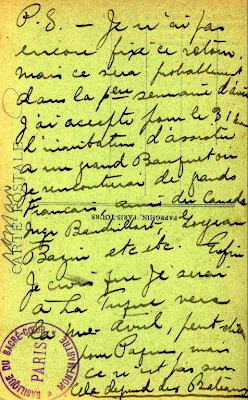 P.S. – Je n'ai pas
encore fixé ce retour,
mais ce sera probablement
dans la 1ère semaine d'avril
J'ai accepté pour le 31
l'invitation d'assister
à un grand Banquet où
je rencontrerai de grands
Français amis du Canada
Mgr Baudrillart,
Bazin etc etc. Enfin
Je crois que je serai
à La Tuque vers
la mi-Avril, peut-être
pour Pâques, mais
ce n'est pas sûr
Cela dépend des Bateaux
CARTE POSTALE
PAPEGHIN, PARIS-TOURS
BASILIQUE DU SACRÉ-COEUR
MONTMARTRE
PARIS